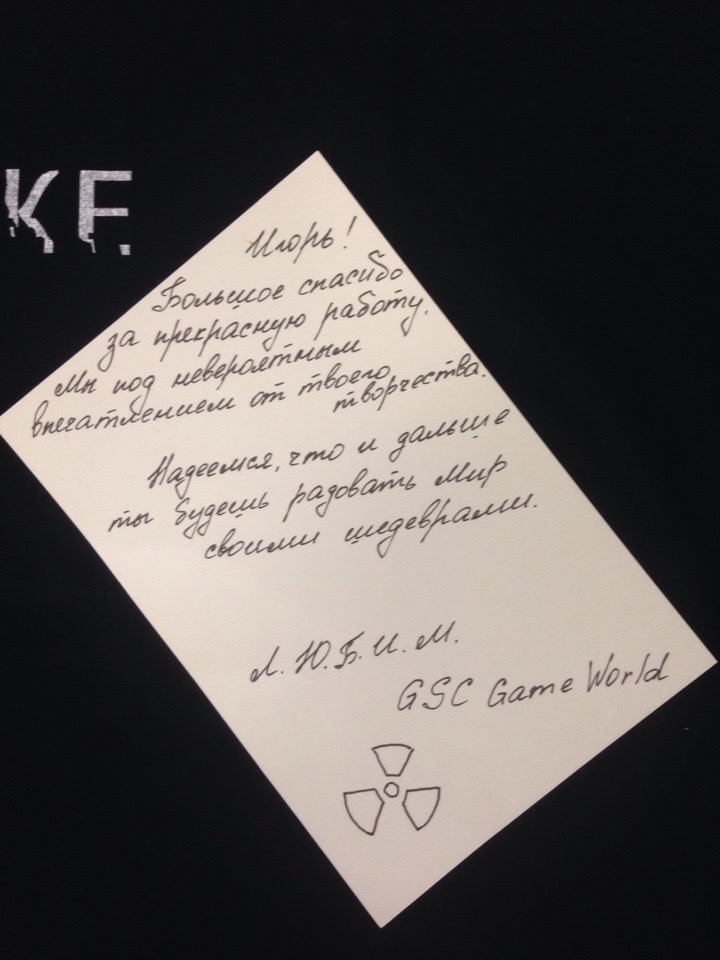 KE
Игорь!
Большое спасибо
за прекрасную работу.
Мы под невероятным
впечатлением от твоего
творчества.
Надеемся, что и дальше
ты будешь радовать мир
своими шедеврами.
Л.Ю.Б.И.М.
GSC Game World